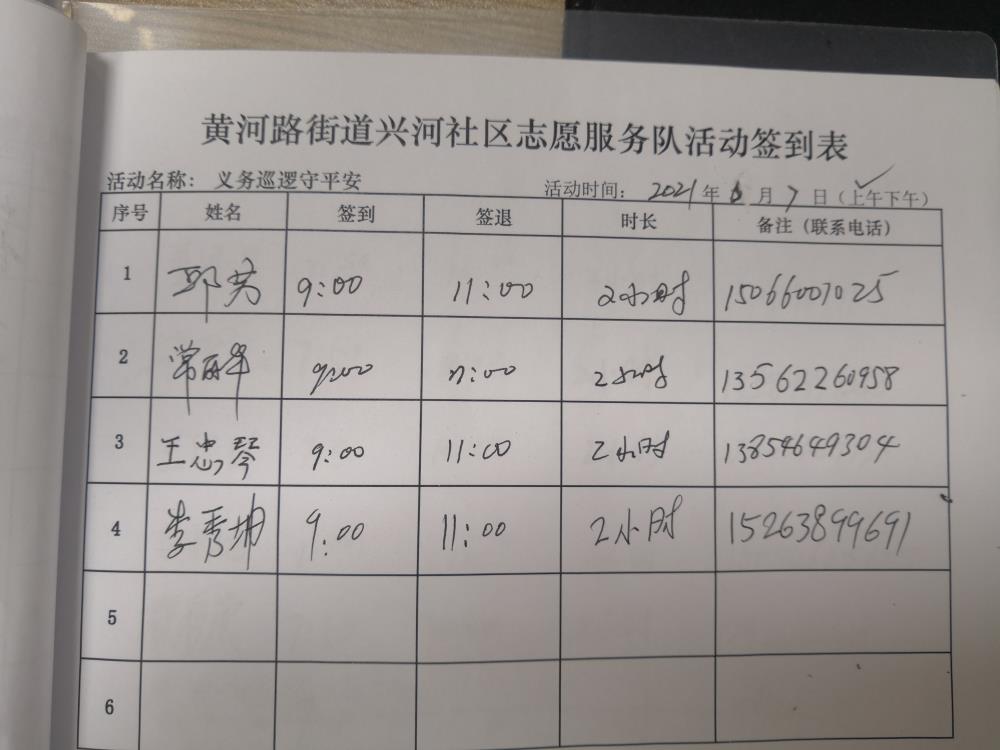 黄河路街道兴河社区志愿服务队活动签到表
活动名称： 义务巡逻守平安 活动时间： 2021年6月7日（上午下午）
序号 姓名 签到 签退 时长 备注（联系电话）
1 邱芳 9:00 11:00 2小时 15066007025
2 常丽华 9:00 11:00 2小时 13562260958
3 王忠琴 9:00 11:00 2小时 13854649304
4 李秀 9:00 11:00 2小时 15263899691
5
6